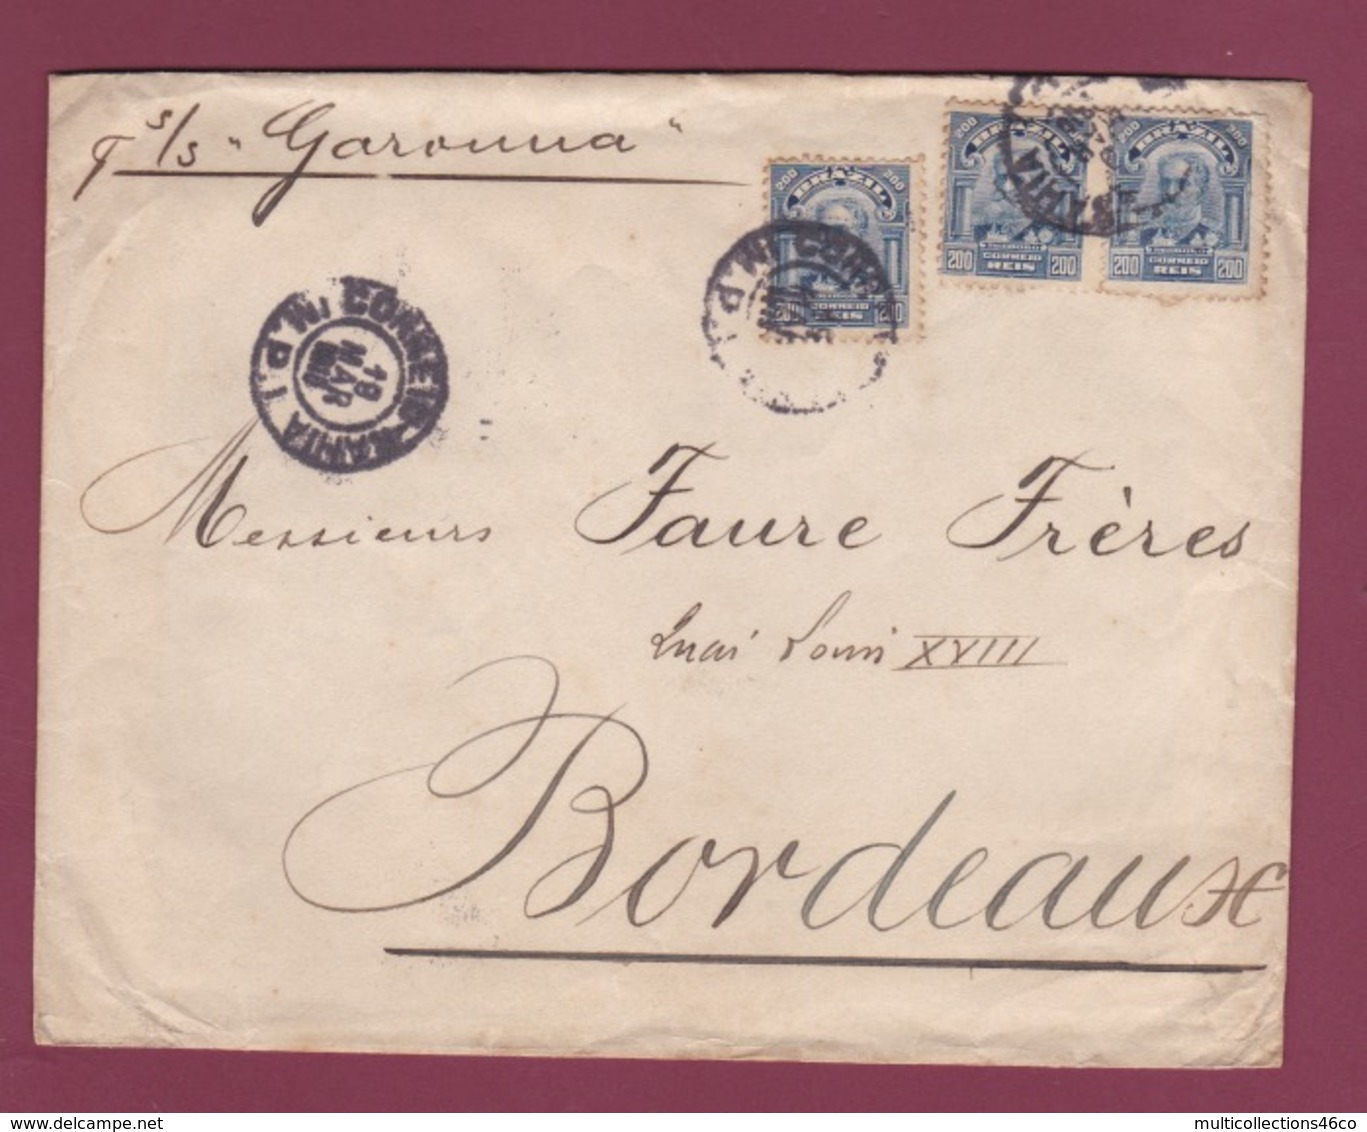 p s/s "Garonna"
200 BRAZIL 200
200 BRAZIL
BRAZIL 200
200 REIS 200
200 CORREIO REIS 200
200 CORREIO REIS 200
Ni CORREIO
P.I
BAHIA
Ni CORREIO BAHIA P.I
18
MAR
Messieurs Faure Frères
Quai Louis XVIII
Bordeaux
delcampe.net
multicollections46co